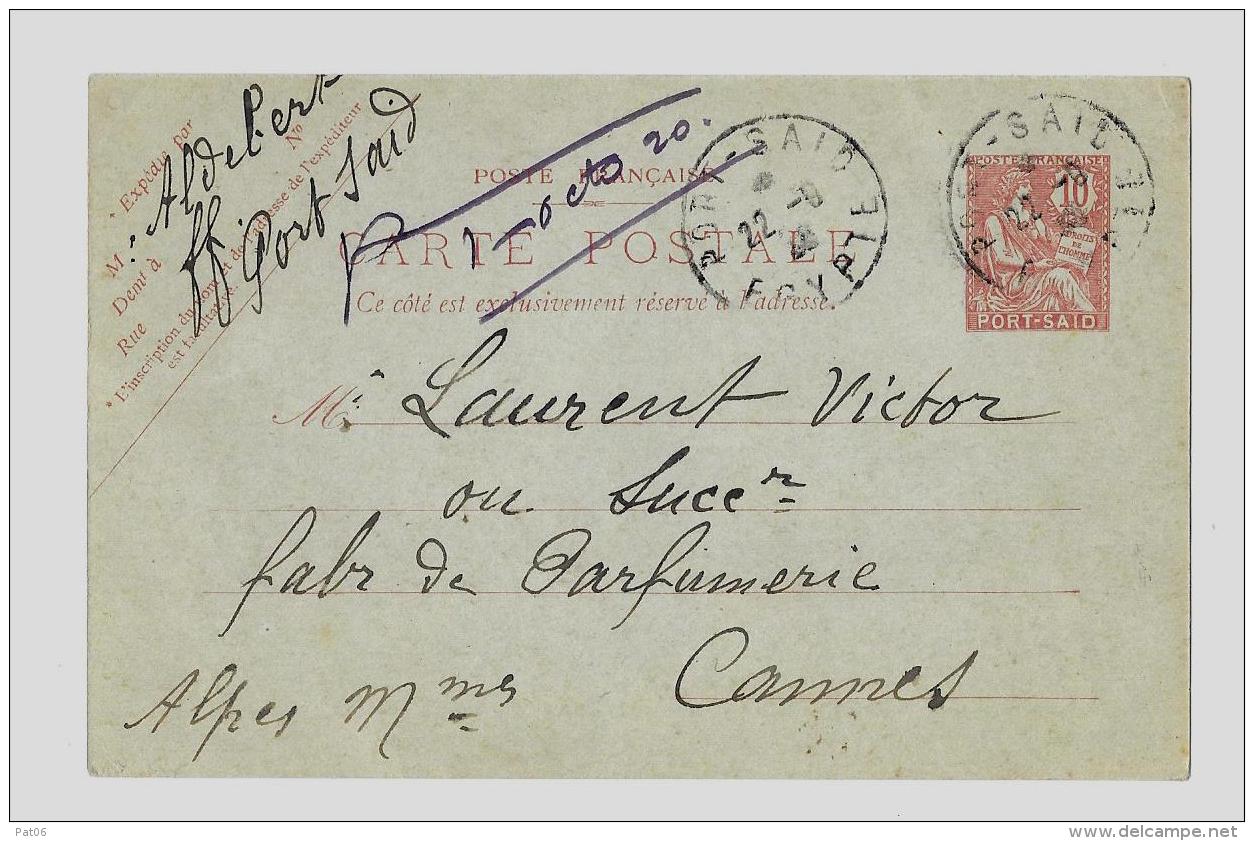 * Expédié par
M : Aldebert
Demt à Port Said
Rue
No
* L'inscription du nom et de l'adresse de l'expéditeur
est facultative.
POSTE FRANÇAISE
octo 20.
CARTE POSTALE
Ce côté est exclusivement réservé à l'adresse.
PORT-SAID
22 -8
EGYPTE
PORT-SAID
22 -8
POSTE FRANÇAISE
10
DROITS
DE
L'HOMME
PORT-SAID
Mr Laurent Victor
ou Succer
fabr de Parfumerie
Cannes
Alpes Mmes
Pat06
www.delcampe.net